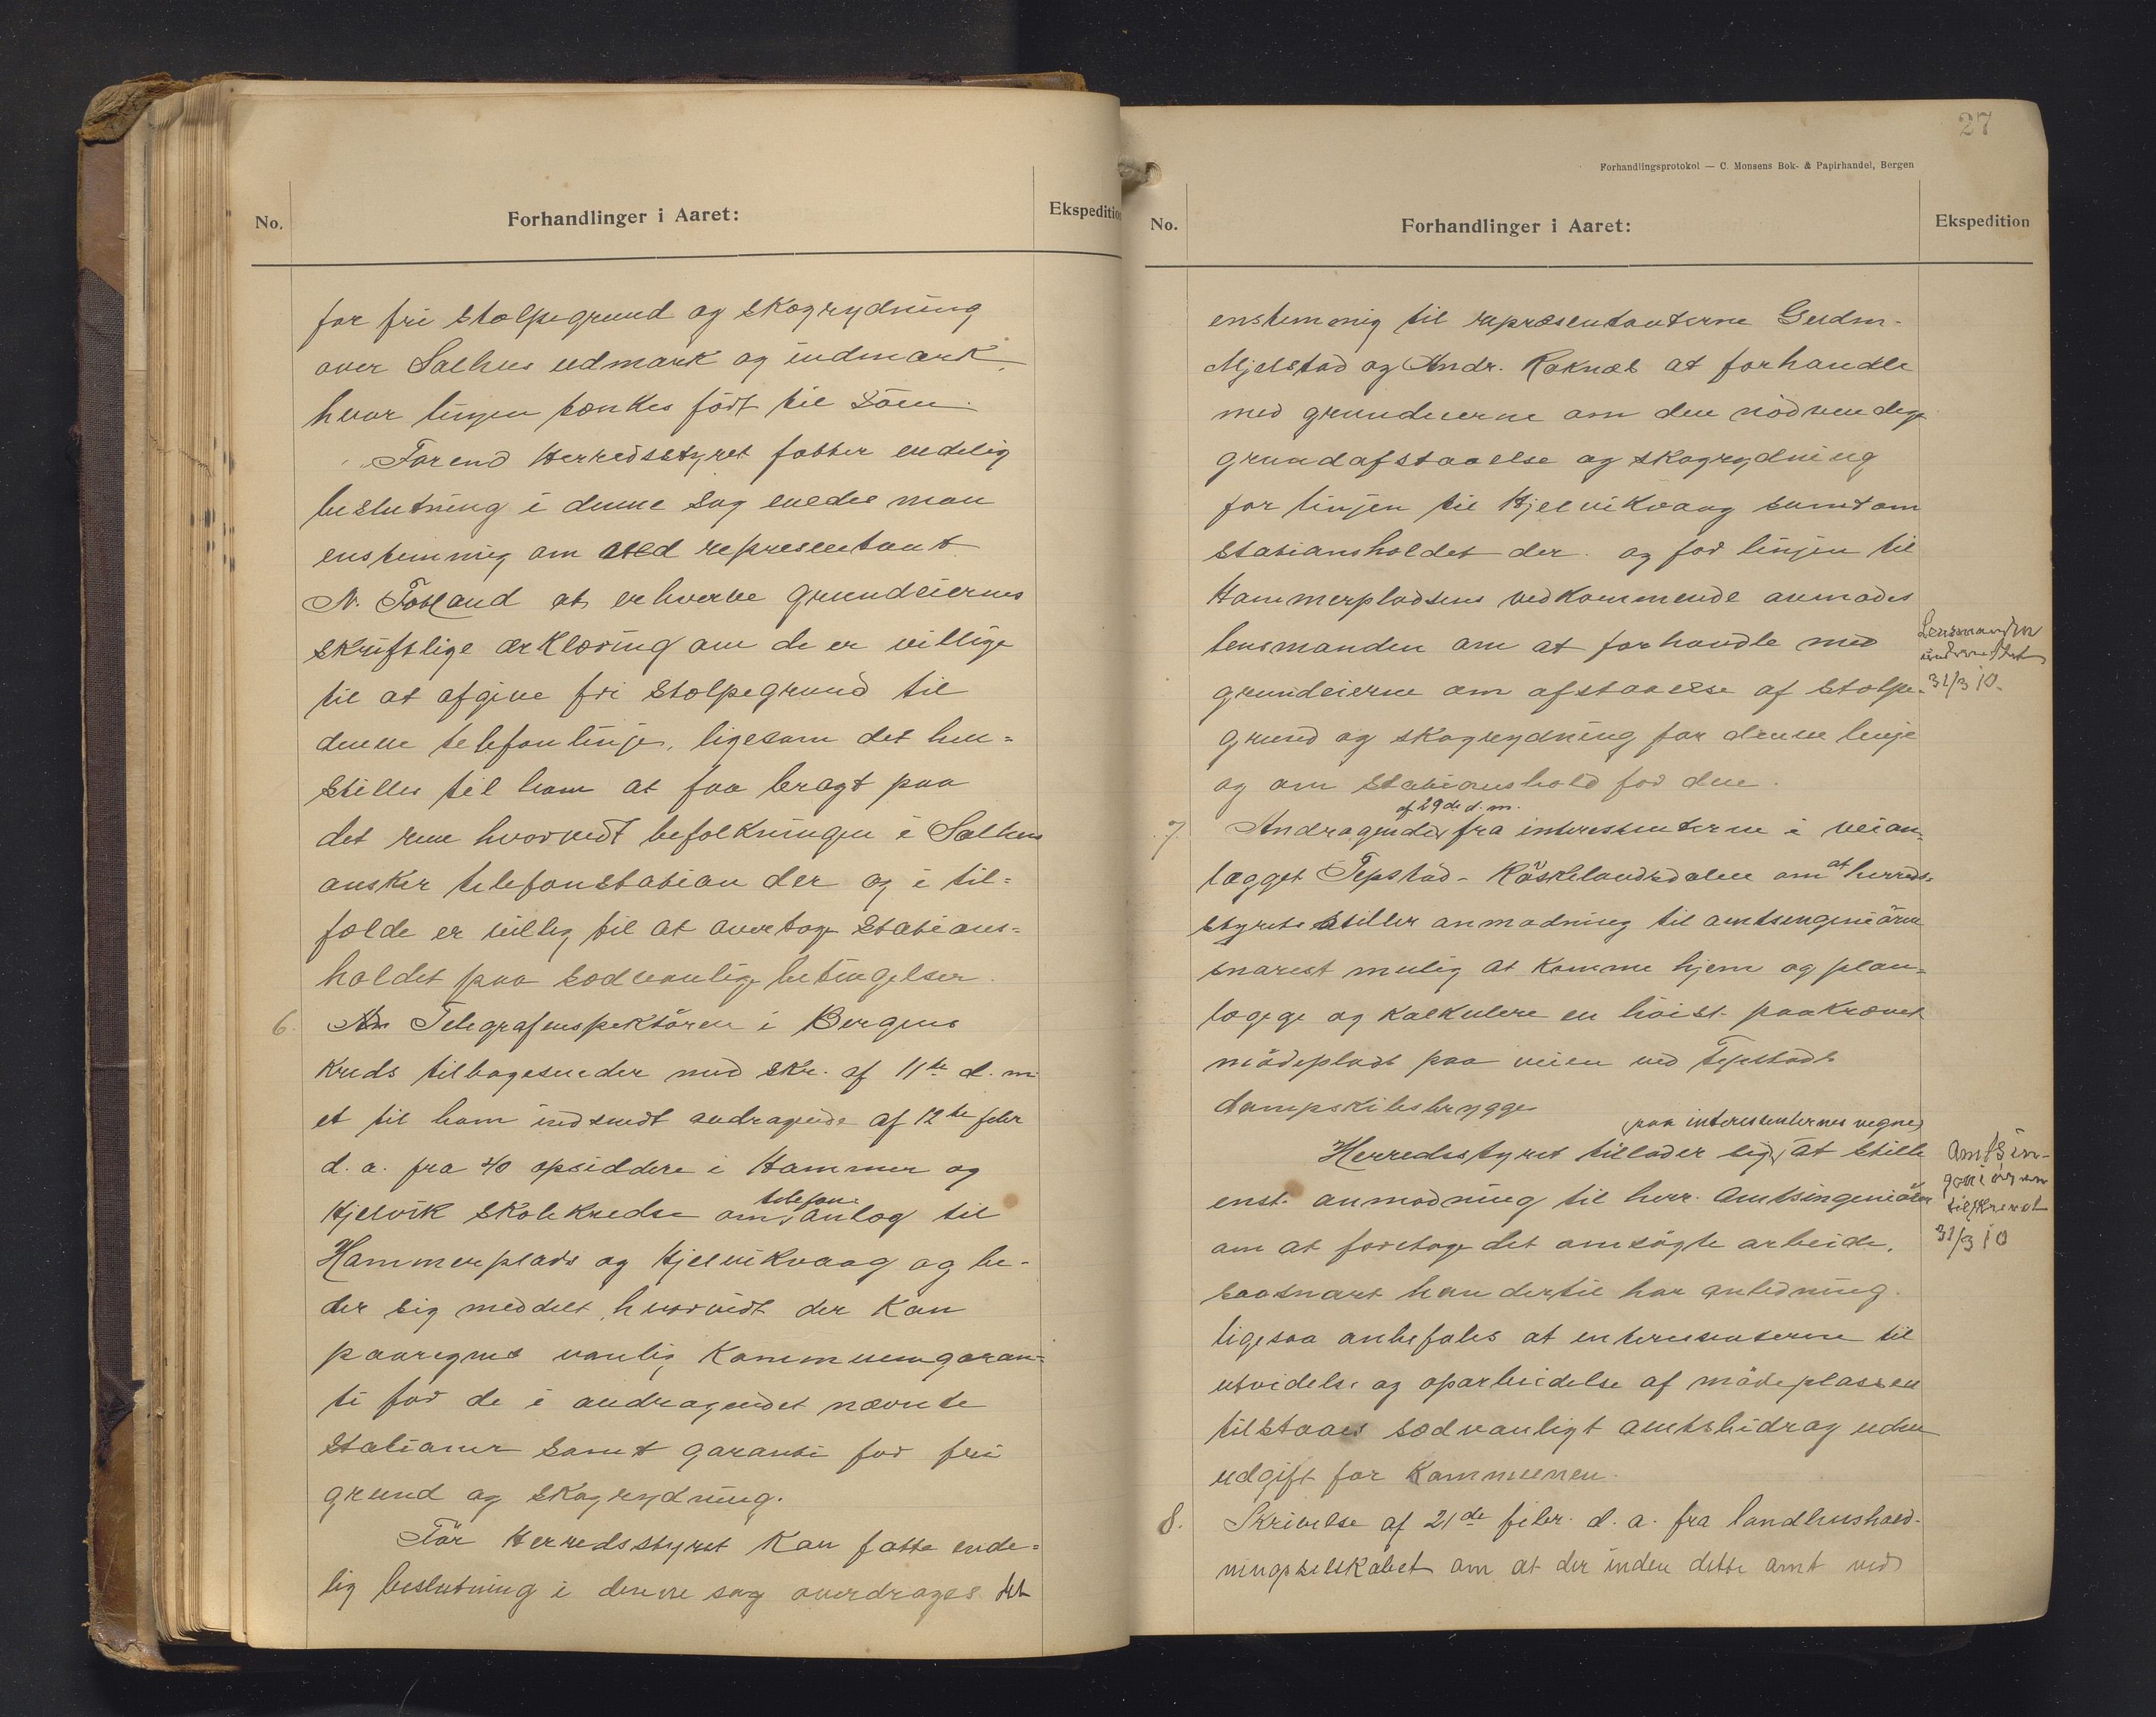 No.
Forhandlinger i Aaret:
Ekspedition
for fri stolpegrund og skogrydning
over Salhus udmark og indmark,
hvor linjen tænkes ført til söen.
Forend Herredsstyret fatter endelig
beslutning i denne sag enedes man
enstemmig om ved representant
N. Totland at erhverve grundeiernes
skriftlige ærklæring om de er villige
til at afgive fri stolpegrund til
denne telefonlinje, ligesom det hen=
stilles til ham at faa bragt paa
det rene hvorvidt befolkningen i Salhus
ønsker telefonstation der og i til=
fælde er villig til at overtage stations=
holdet paa sedvanlige betingelser.
6. Telegrafinspektören i Bergens
kreds tilbagesender med skr. af 11te d. m
et til ham indsendt andragende af 12te febr
d. a. fra 40 opsiddere i Hammer og
telefon-
Hjelvik skolekredse om anlæg til
Hammerplads og Hjelvikvaag og be-
der sig meddelt, hvorvidt der kan
paaregnes vanlig kommunegaran=
ti for de i andragendet nævnte
stationer samt garanti for fri
grund og skogrydning.
Før Herredsstyret kan fatte ende=
lig beslutning i denne sag overdrages det
27
Forhandlingsprotokol — C. Monsens Bok- & Papirhandel, Bergen
No.
Forhandlinger i Aaret:
Ekspedition
enstemmig til repræsentanterne Gudm.
Mjelstad og Andr. Roknæs at forhandle
med grundeierne om den nödvendige
grundafstaaelse og skogrydning
for linjen til Hjelvikvaag samt om
stationsholdet der. og for linjen til
Hammerpladsens vedkommende anmodes
lensmanden om at forhandle med
Lensmanden
underrettet
31/3 10.
grundeierne om afstaaelse af stolpe-
grund og skogrydning for denne linje
og om stationshold for den.
af 29de d. m.
7. Andragende fra interessenterne i veian-
lægget Tepstad - Röskelandsdalen om at herreds-
styret stiller anmodning til amtsingeniören
snarest mulig at komme hjem og plan-
lægge og kalkulere en höist paakrævet
mödeplads paa veien ved Tepstads
dampskibsbrygge
paa interessenternes vegne
Herredsstyret tillader sig at stille
enst. anmodning til herr. Amtsingeniören
Amtsin-
geniören
tilskrevet
31/3 10
om at foretage det ansögte arbeide,
saasnart han dertil har anledning.
ligesaa anbefales at interessenterne til
utvidelse og oparbeidelse af mödeplassen
tilstaaes sædvanligt amtsbidrag uden
udgift for kommunen.
8. Skrivelse af 21de febr. d. a. fra landhushold-
ningsselskabet om at der inden dette amt ved